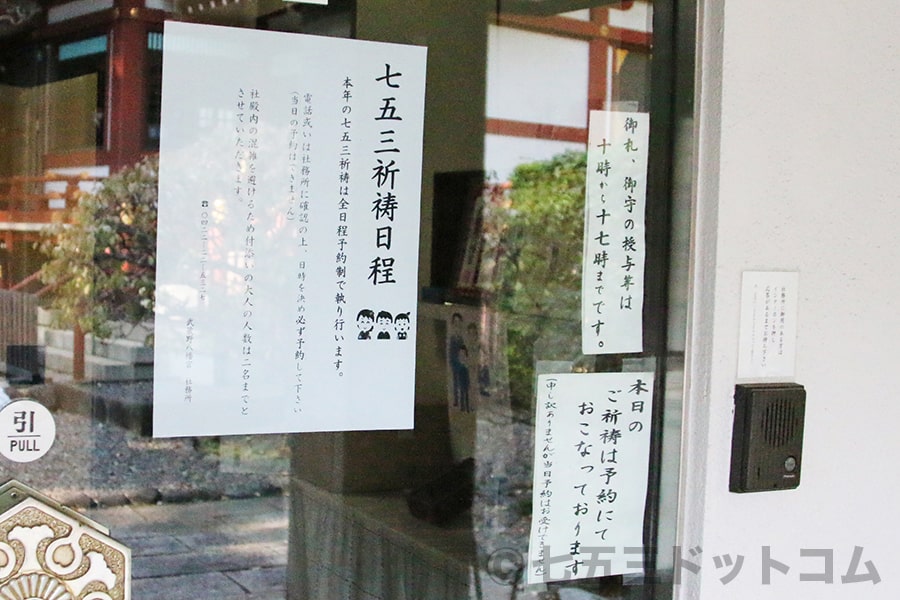 七五三祈祷日程
本年の七五三祈祷は全日程予約制で執り行います。
電話或いは社務所に確認の上、日時を決め必ず予約して下さい
(当日の予約はできません)
社殿内の混雑を避けるため付添いの大人の人数は二名までと
させていただきます。
武蔵野八幡宮 社務所
御札、御守の授与等は
十時から十七時までです。
本日の
ご祈祷は予約にて
おこなっております
(申し訳ありません。当日予約はお受けできません)
引
PULL
©七五三ドットコム